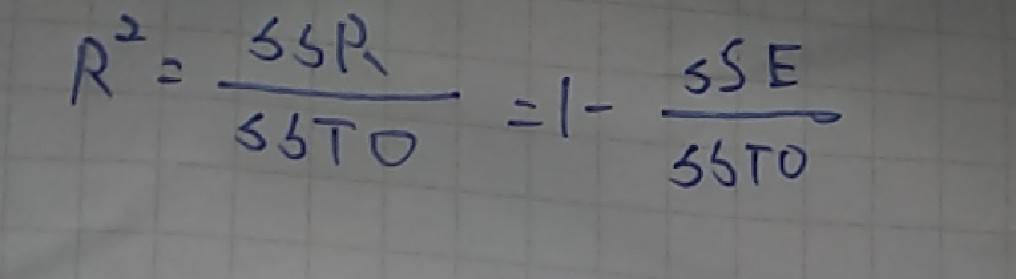 R² = SSR / SSTO = 1 - SSE / SSTO